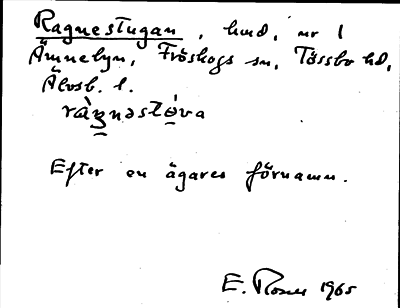 Ragnestugan, hmd, nr 1
Ämnebyn, Fröskogs sn, Tössbo hd,
Älvsb. l.
Efter en ägares förnamn.
E. Rosell 1965